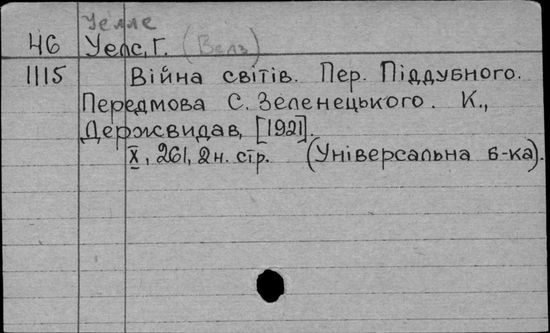 Уелле
46 Уелс, Г. (Велз)
1115 Війна світів. Пер. Піддубного.
Передмова С. Зеленецького. К.,
Держвидав, [1921].
X, 261, 2 н. стр. (Універсальна б-ка).